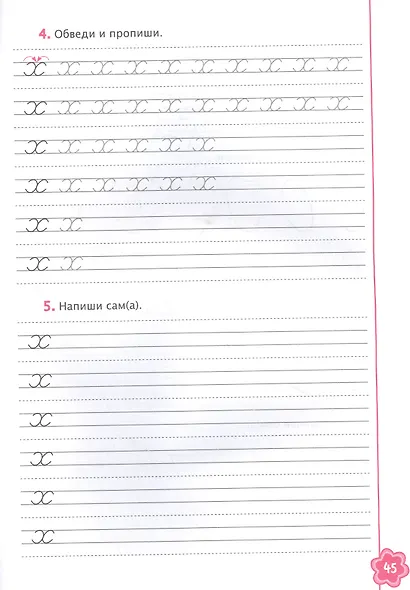 4. Обведи и пропиши.
х х х х х х х х х х
х х х х х х х х х х
х х х х х х
х х х х х х
х х
х х
5. Напиши сам(а).
х
х
х
х
х
х
45